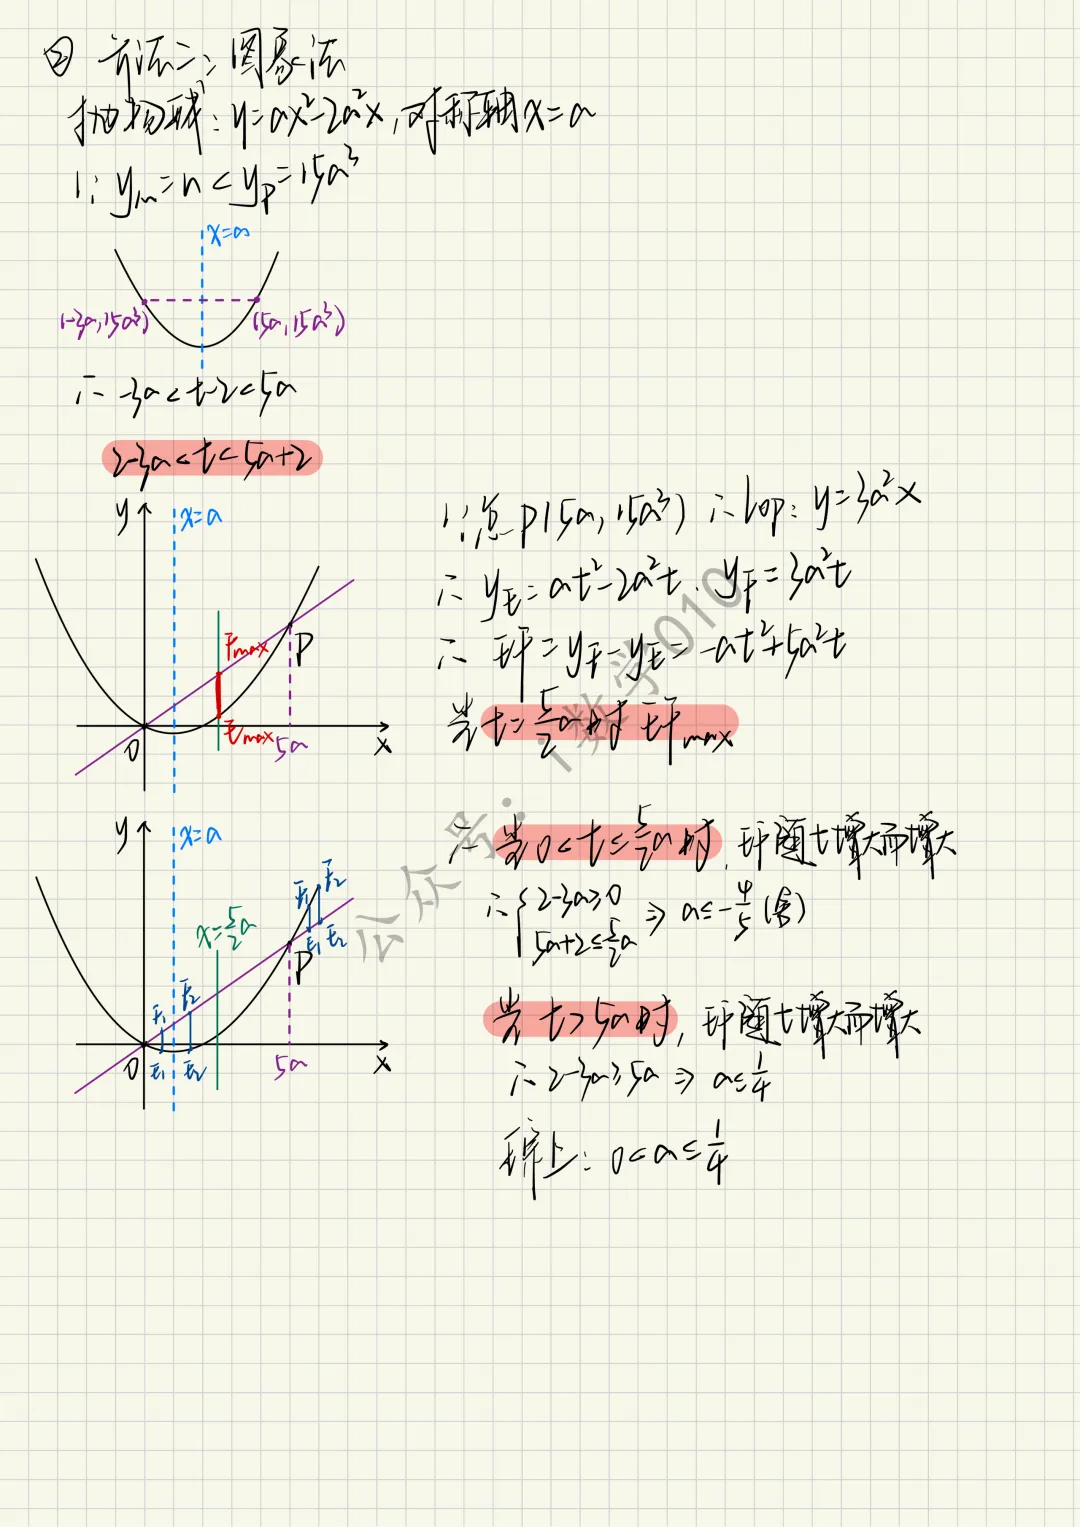 ② 方法二:图象法
抛物线:y=ax²-2a²x,对称轴x=a
∵ yₘ=n<y_P=15a³
x=a
(-3a,15a³)
(5a,15a³)
∴ -3a<t-2<5a
2-3a<t<5a+2
y
x=a
Fmax
P
O
Emax
5a
x
∵点P(5a,15a³) ∴ l_OP:y=3a²x
∴ y_E=at²-2a²t, y_F=3a²t
∴ EF=y_F-y_E=-at²+5a²t
当t=5/2a时 EFmax
y
x=a
x=5/2a
F₁
F₂
E₁
E₂
P
F₁
F₂
E₁
E₂
O
5a
x
∴ 当0<t≤5/2a时,EF随t增大而增大
∴ {2-3a≥0
5a+2≤5/2a
⇒ a≤-4/5(舍)
当t>5a时,EF随t增大而增大
∴ 2-3a≥5a ⇒ a≤1/4
综上:0<a≤1/4
公众号:i数学010